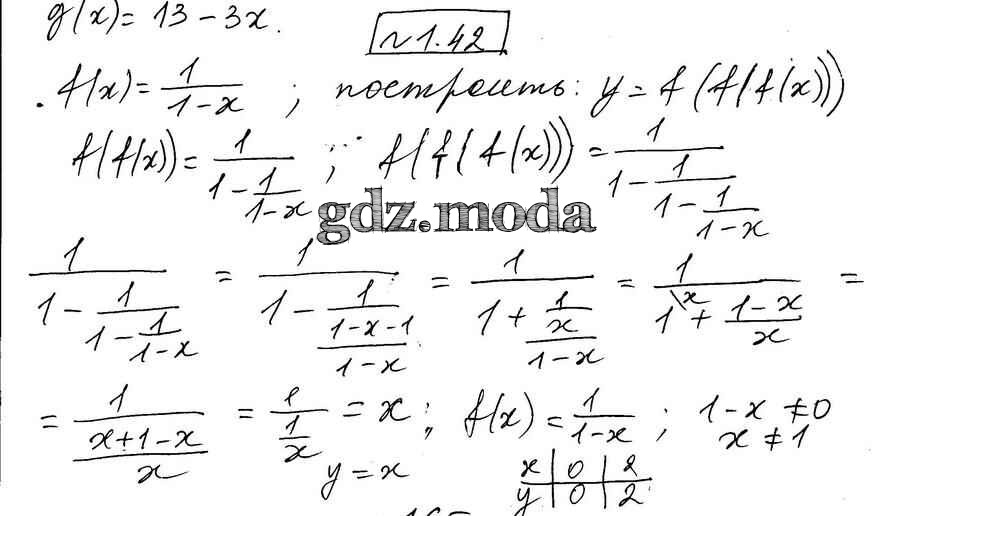 g(x) = 13 - 3x.
~1.42
. f(x) = 1/(1-x) ; построить: y = f(f(f(x)))
f(f(x)) = 1/(1 - 1/(1-x)) ; f(f(f(x))) = 1/(1 - 1/(1 - 1/(1-x)))
gdz.moda
1/(1 - 1/(1 - 1/(1-x))) = 1/(1 - 1/((1-x-1)/(1-x))) = 1/(1 + 1/(x/(1-x))) = 1/(1\x + (1-x)/x) =
= 1/((x+1-x)/x) = 1/(1/x) = x ; f(x) = 1/(1-x) ; 1-x ≠ 0
x ≠ 1
y = x
x | 0 | 2
y | 0 | 2